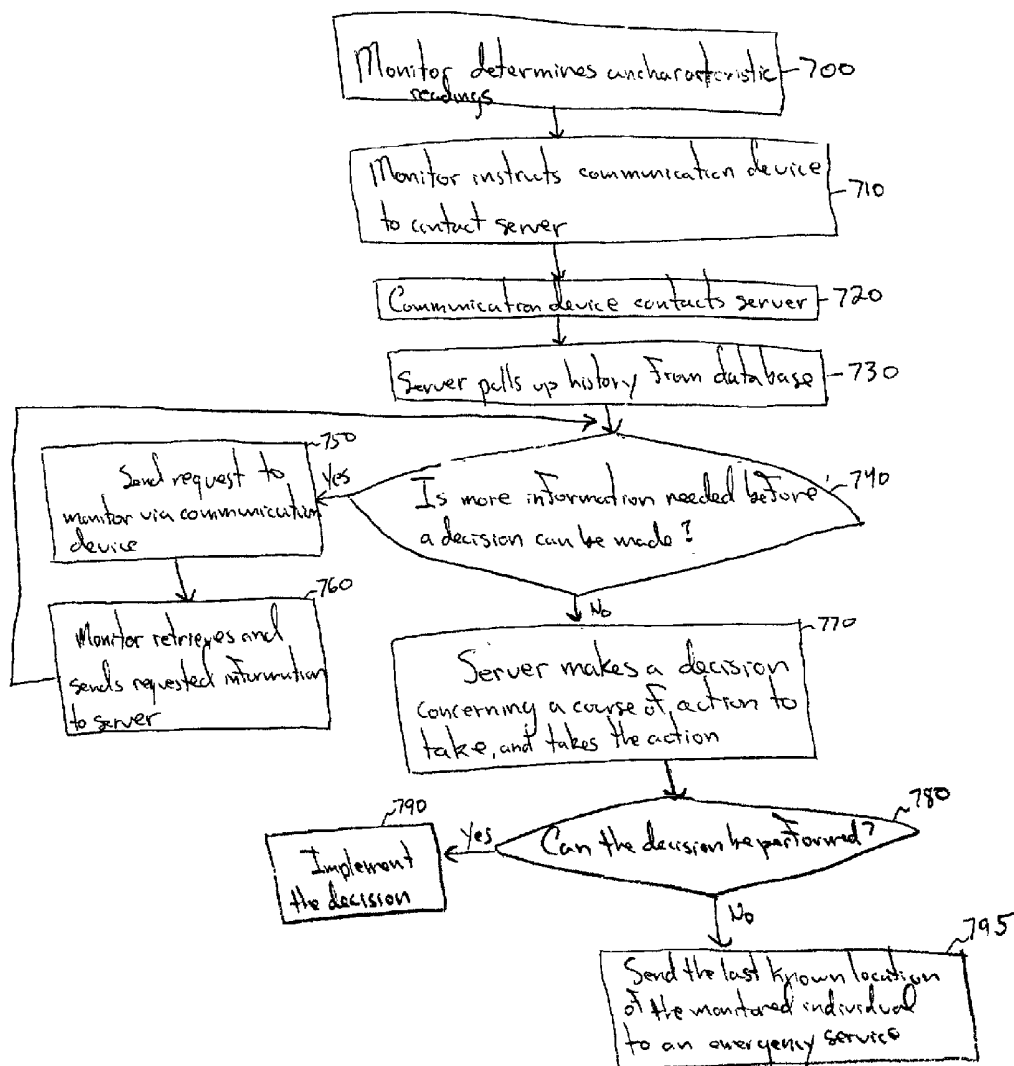 Monitor determines uncharacteristic
readings
700
Monitor instructs communication device
to contact server
710
Communication device contacts server
720
Server pulls up history from database
730
750
Send request to
monitor via communication
device
Yes
Is more information needed before
a decision can be made?
740
No
760
Monitor retrieves and
sends requested information
to server
770
Server makes a decision
concerning a course of action to
take, and takes the action
780
Can the decision be performed?
Yes
790
Implement
the decision
No
795
Send the last known location
of the monitored individual
to an emergency service